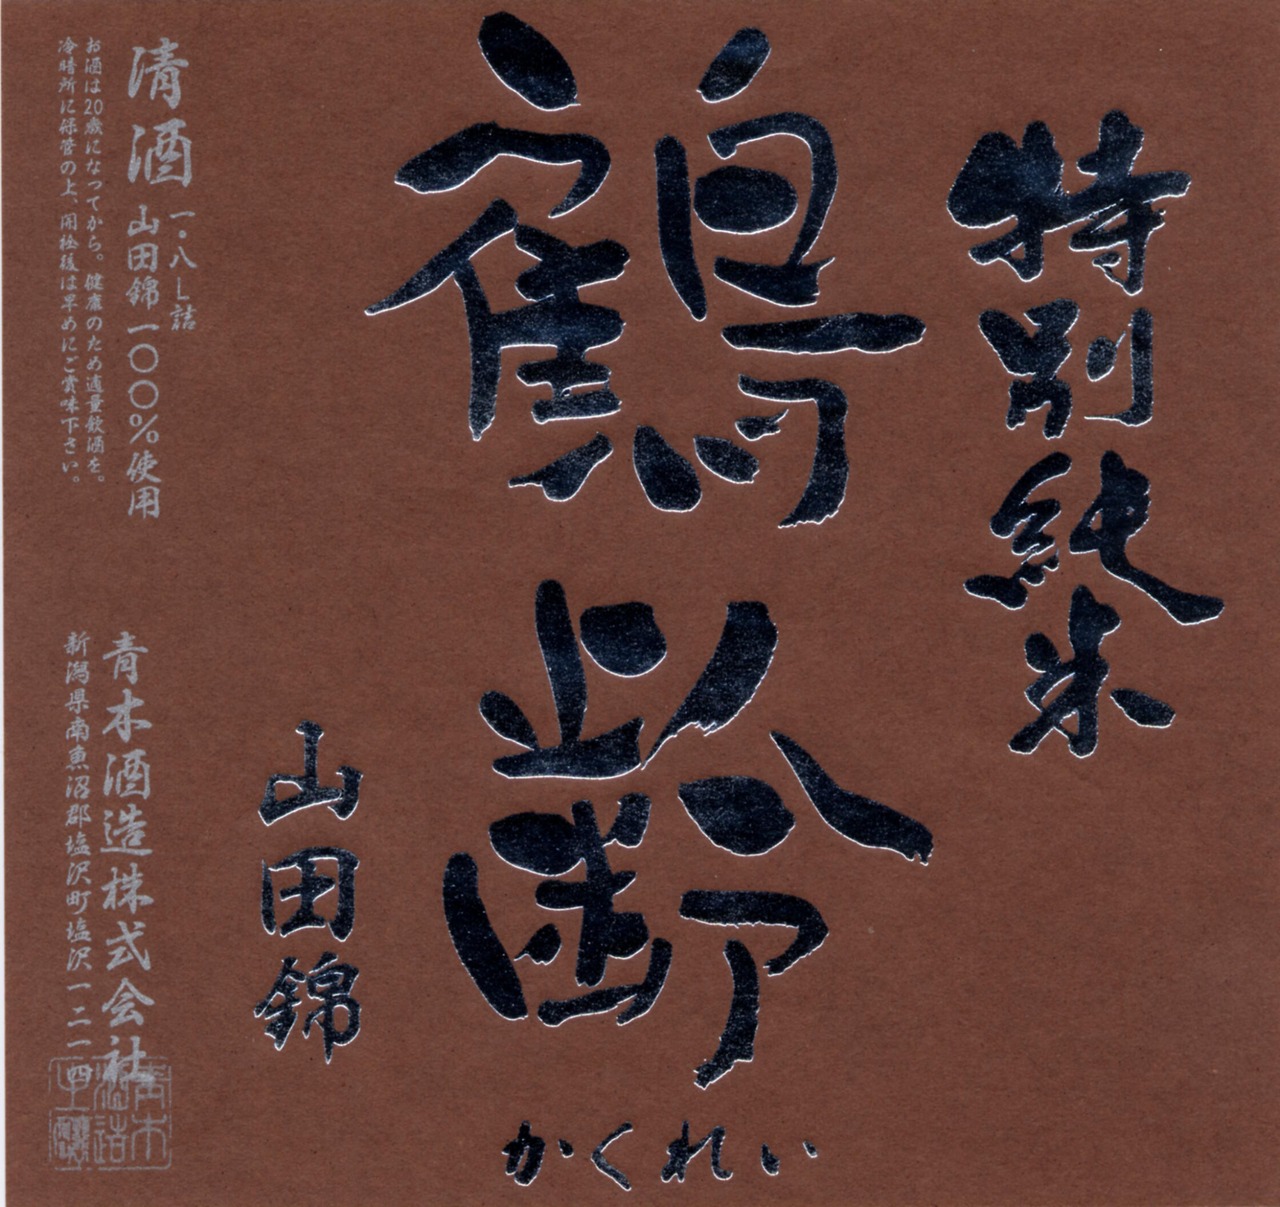 特別純米
鶴齢
かくれい
山田錦
清酒
一・八L詰
山田錦一〇〇%使用
お酒は20歳になってから。健康のため適量飲酒を。
冷暗所に保管の上、開栓後は早めにご賞味下さい。
青木酒造株式会社
新潟県南魚沼郡塩沢町塩沢一二一四